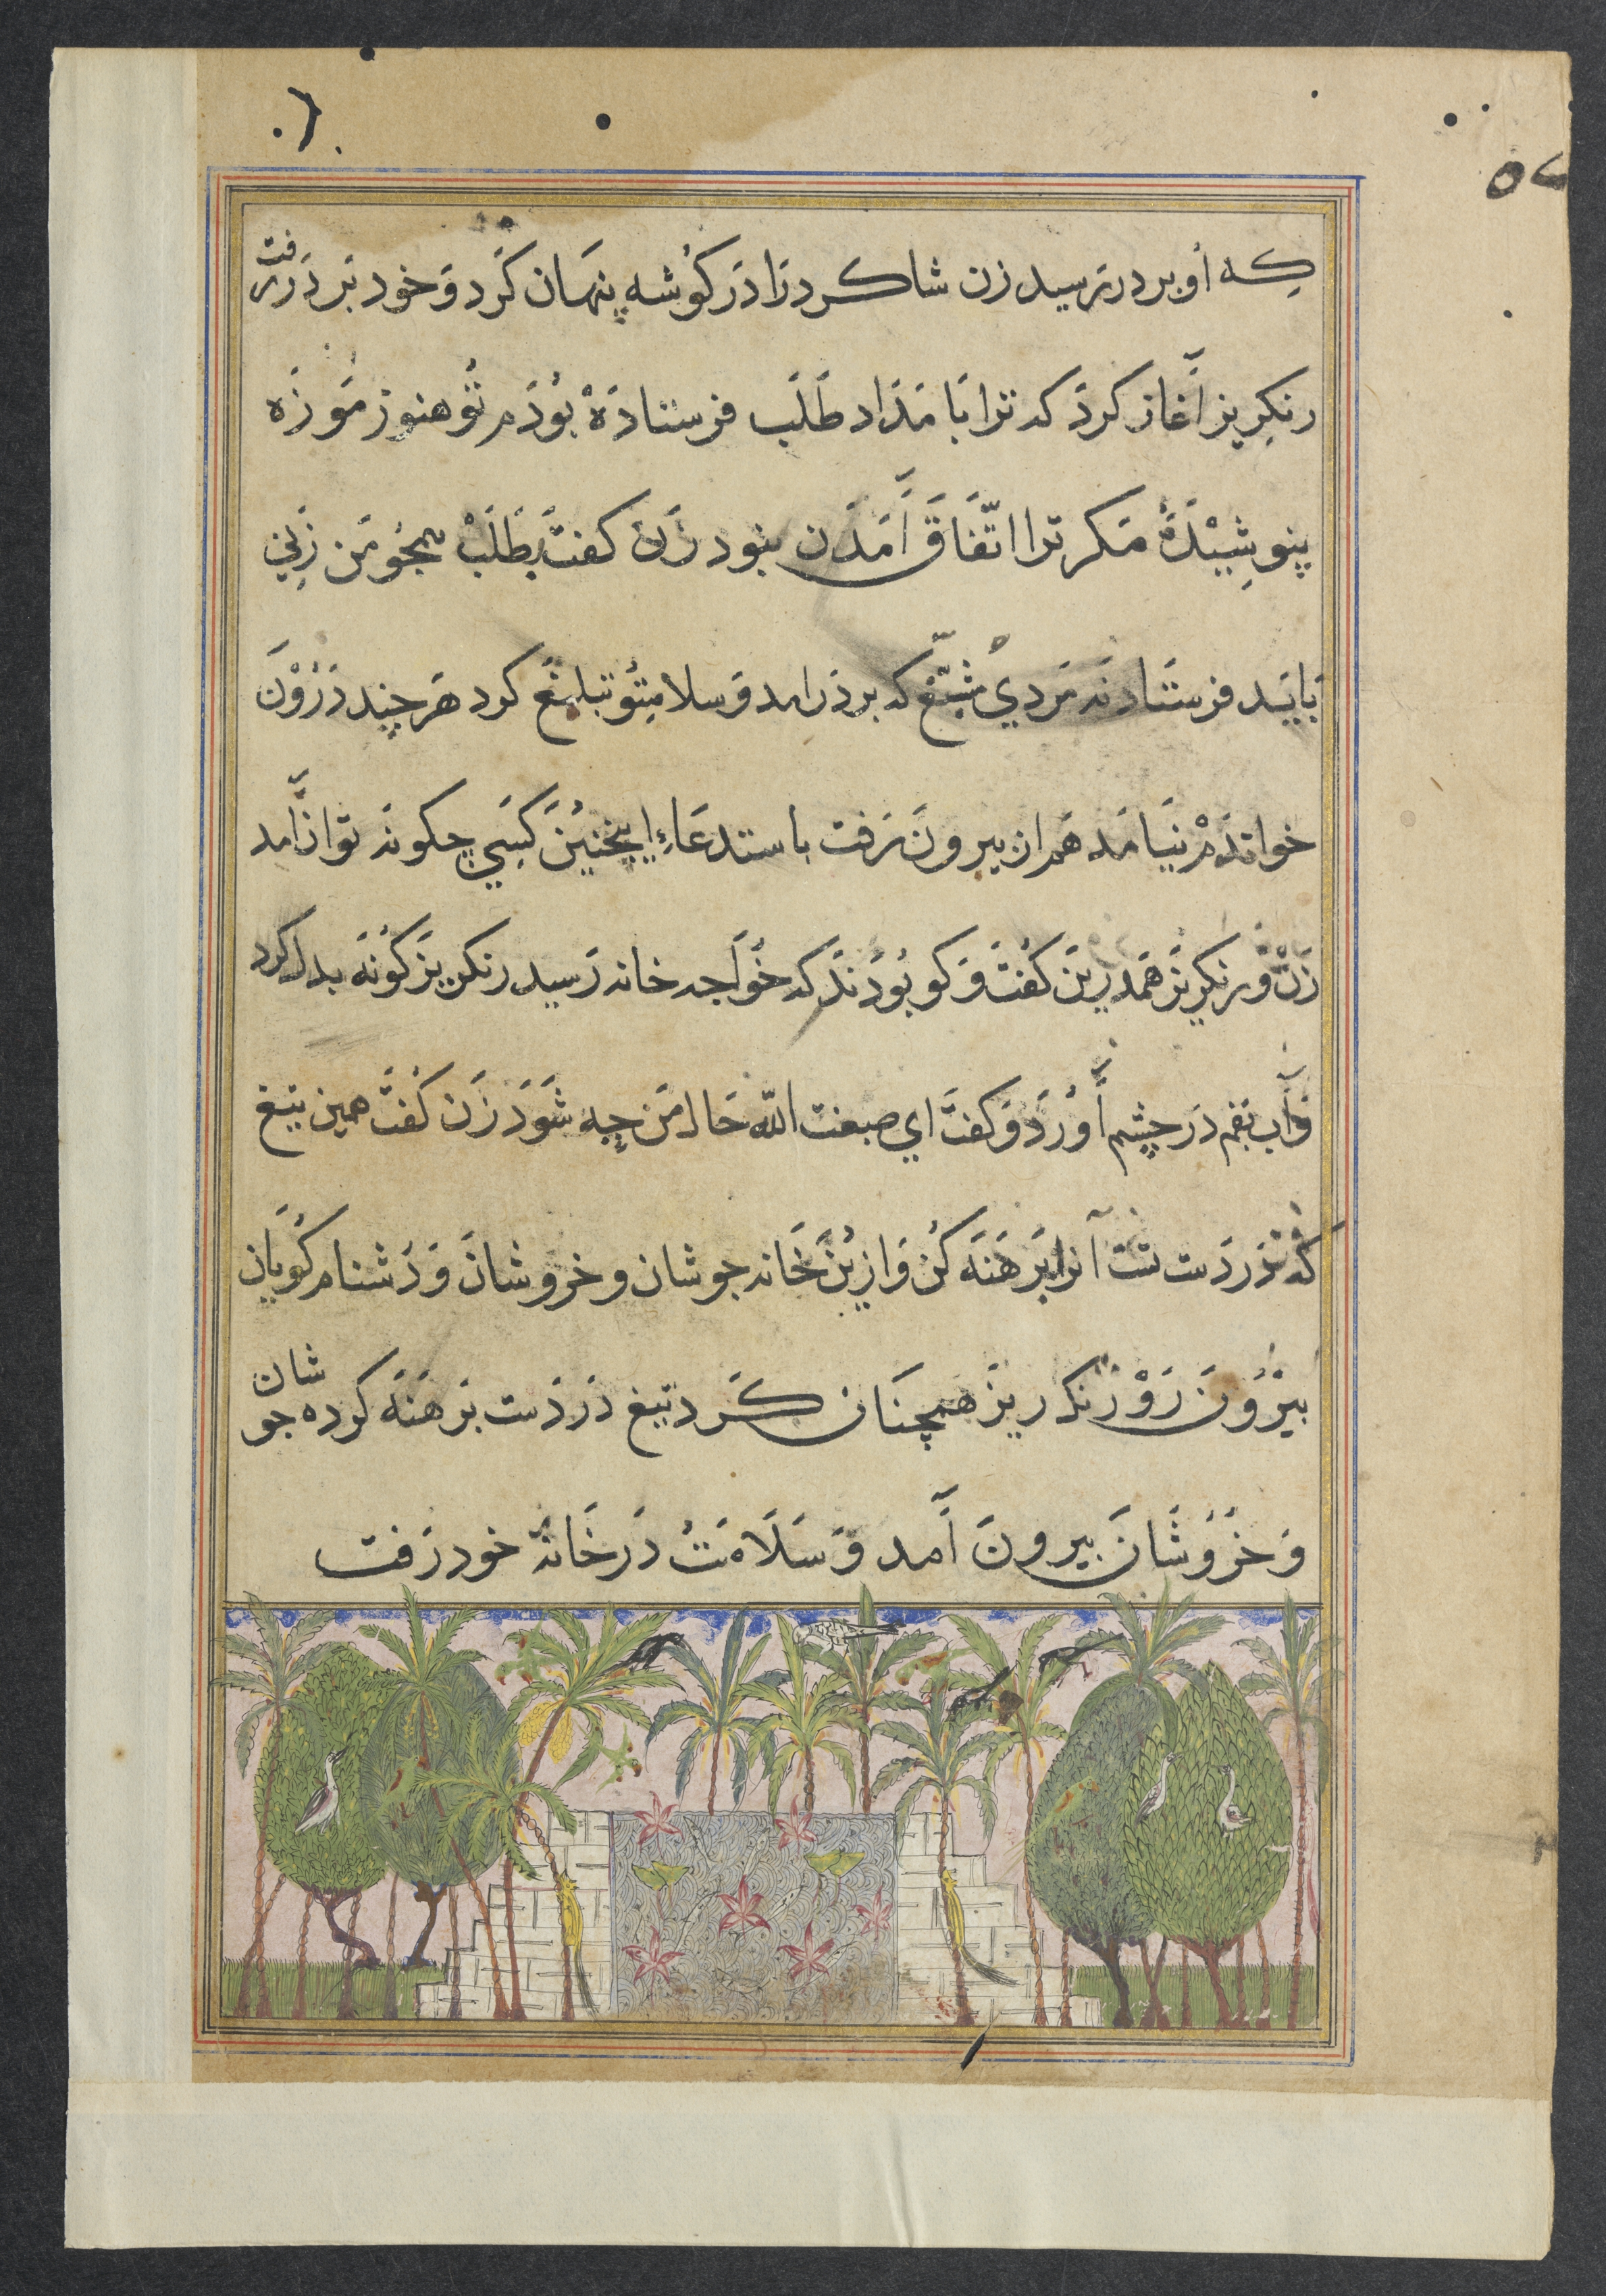 که او بر در رسید زن شاکرد را در کوشه پنهان کرد و خود بر در رفت
رنکریز آغاز کرد که ترا بامداد طلب فرستاده بودم تو هنوز موزه
پنوشیده مکر ترا اتّفاق آمدن بنود زن کفت بطلب همچو من زنی
بایید فرستادند مردی که بر در امد و سلامتو تبلیغ کرد هر چند درون
خواندم نیامد هم از بیرون رفت باستدعاء اینچنین کسی چکونه تواند آمد
زن و رنکریز همدرین کفت و کو بودند که خواجه خانه رسید رنکریز کونه بدل کرد
و آب بقم در چشم آورد و کفت ای صبغت الله حال من چه شود زن کفت همین تیغ
که در دست تست آنرا برهنه کن و ازین خانه جوشان و خروشان و دشنام کویان
بیرون رو رنکریز همچنان کرد تیغ در دست برهنه کرده جوشان
و خروشان بیرون آمد و سلامت در خانه خود رفت